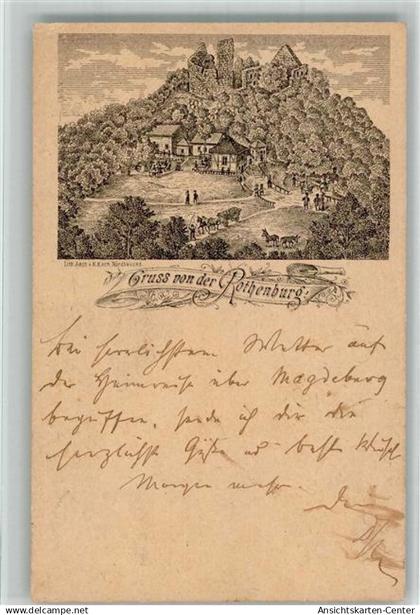 Lith. Anst. v. K. Koch, Nordhausen
Gruss von der Rothenburg.
Bei herrlichstem Wetter auf
der Heimreise über Magdeburg
begriffen, sende ich dir die
herzlichst Grüße und beste Wünsche
Morgen mehr.
Dein
www.ansichtskarten-center.de
Ansichtskarten-Center